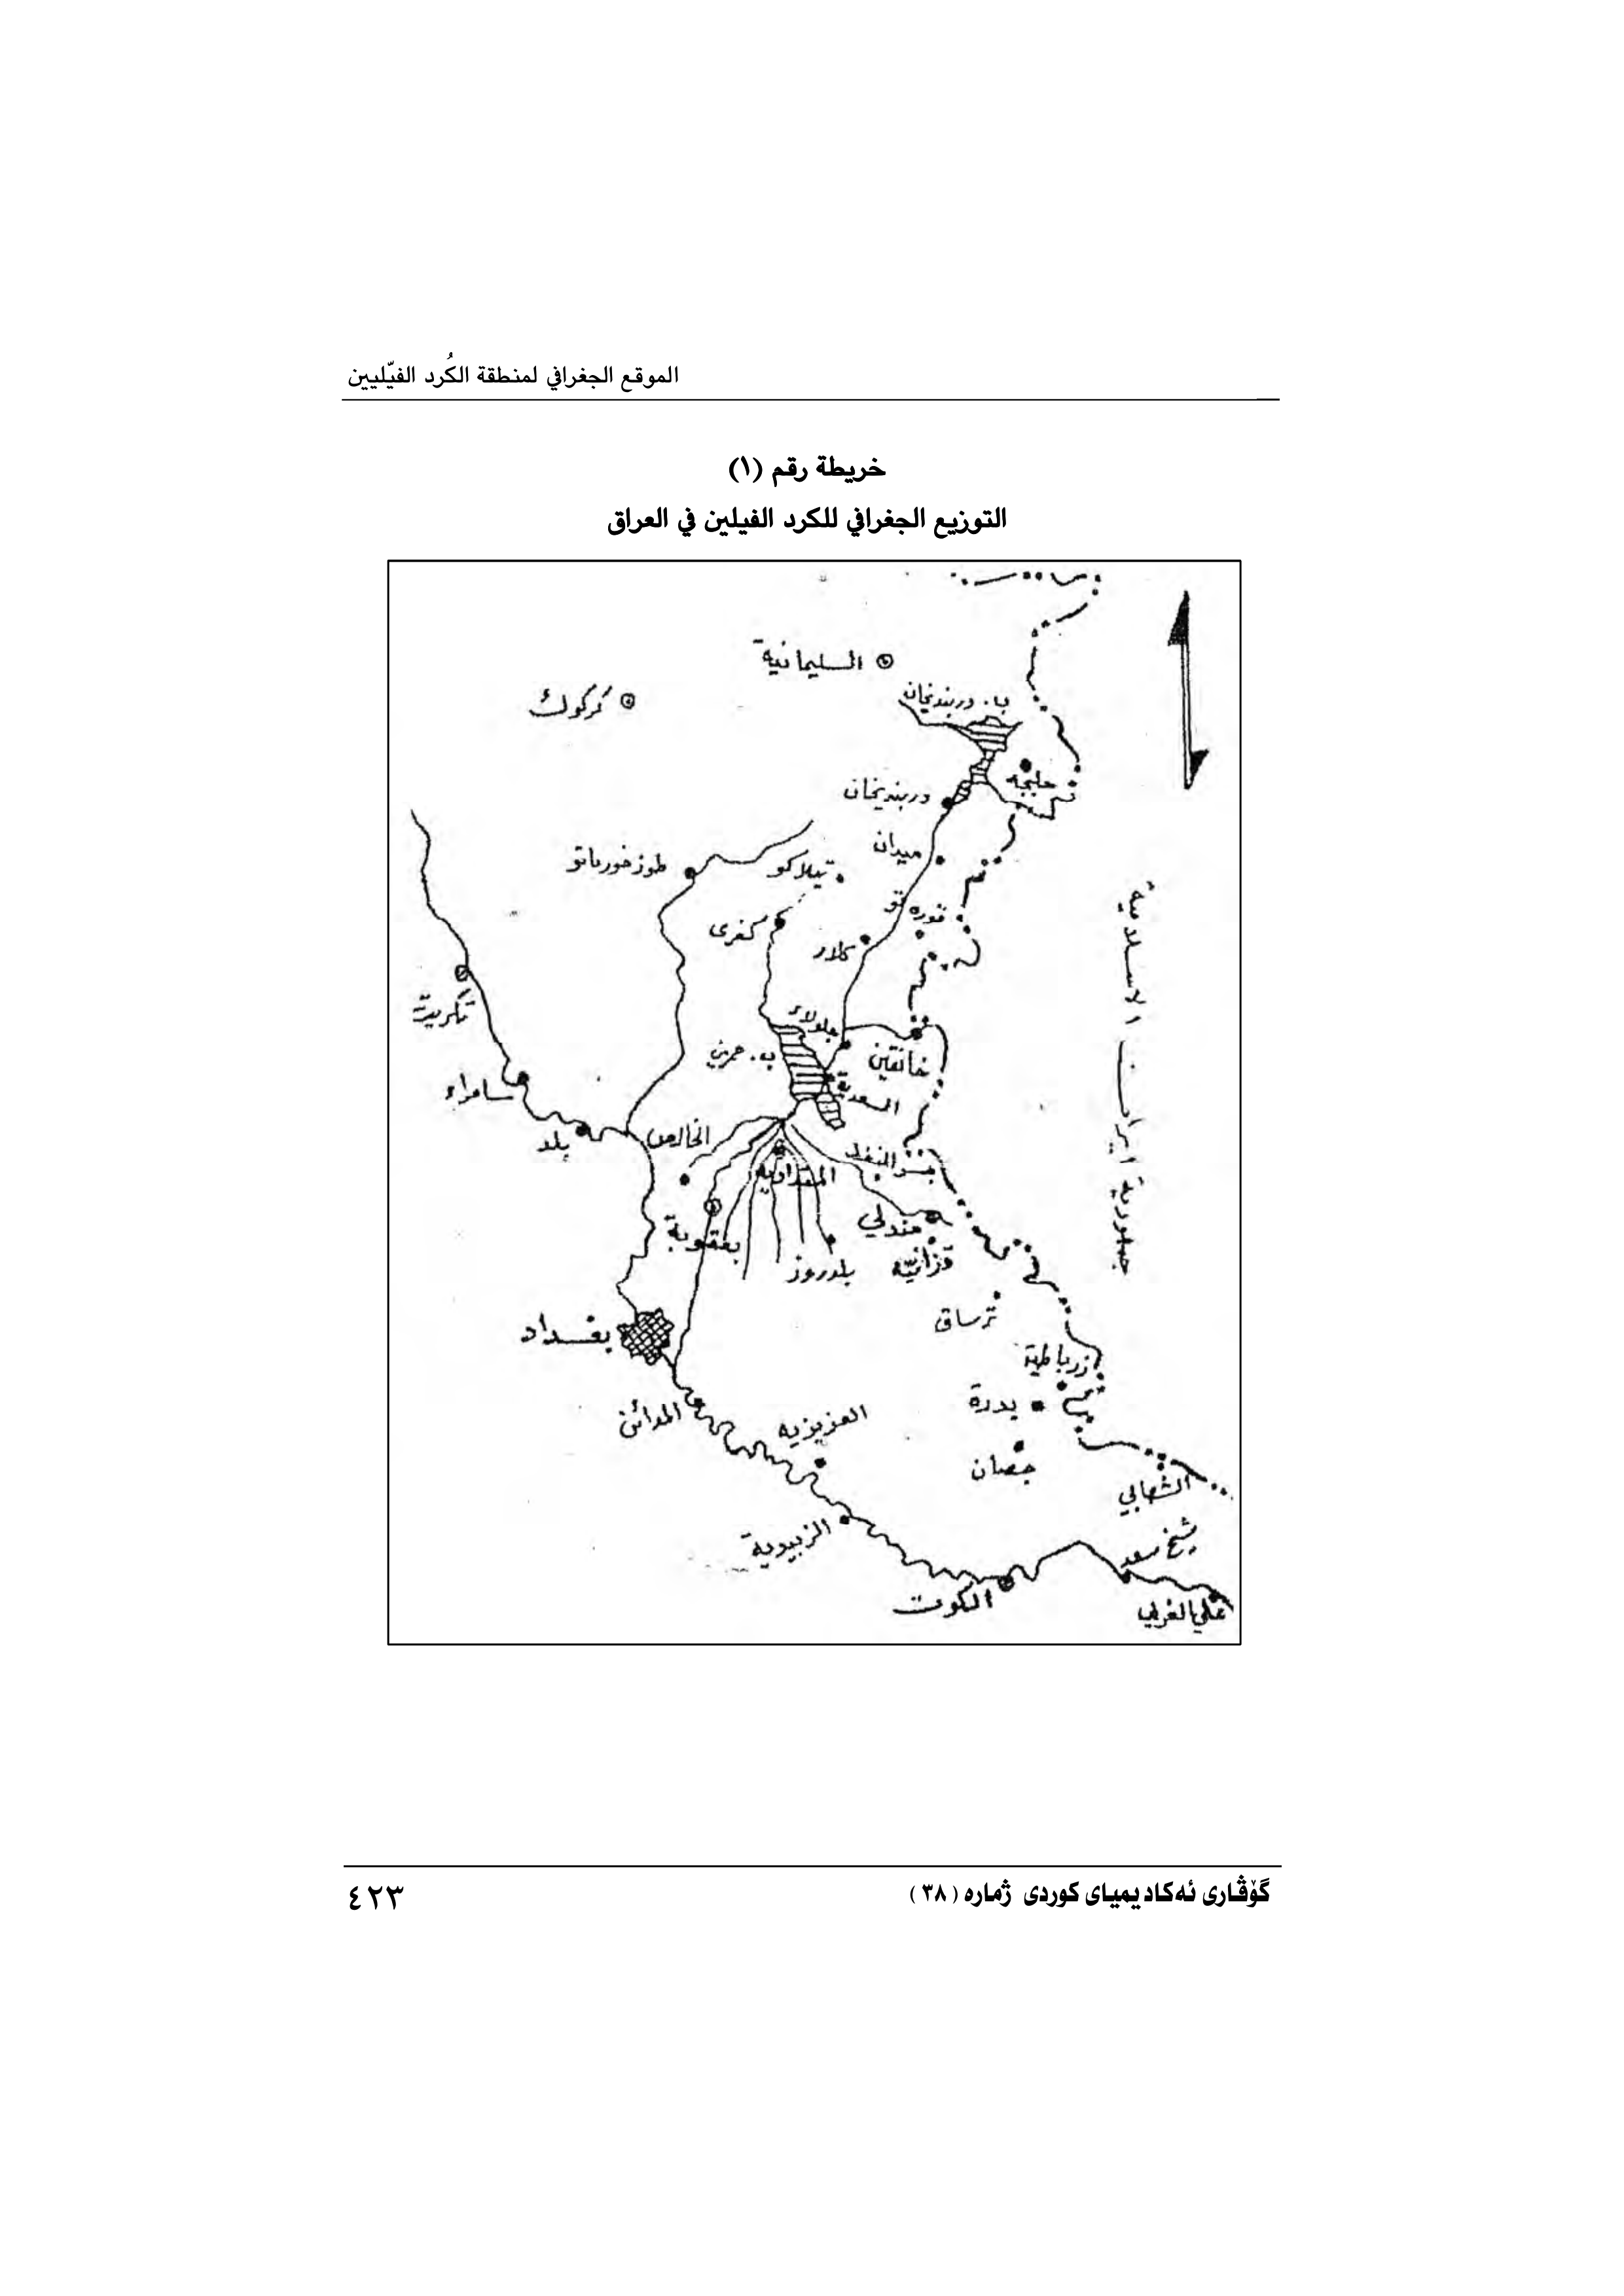 الموقع الجغرافي لمنطقة الكُرد الفيّليين
خريطة رقم (١)
التوزيع الجغرافي للكرد الفيلين في العراق
السليمانية
كركوك
ب. دربنديخان
حلبجه
دربنديخان
ميدان
طوز خورماتو
تيلاكو
قوره تو
كفرى
كلار
تكريت
جلولاء
ب. حمرين
خانقين
السعدية
سامراء
بلد
الخالص
المقدادية
بعقوبة
مندلي
بلدروز
قزانيه
بغداد
ترساق
زرباطية
بدرة
المدائن
العزيزيه
جصان
الشهابي
الزبيدية
شيخ سعد
الكوت
علي الغربي
جمهورية ايران الاسلامية
گۆڤاری ئەكادیمیای كوردی ژمارە ( ٣٨ )
٤٢٣